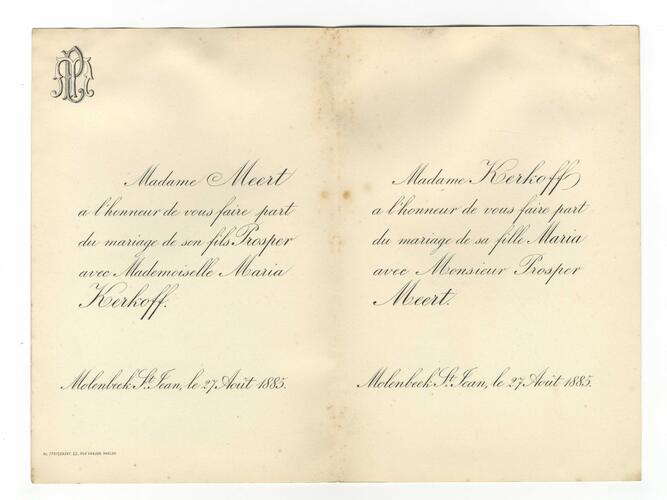 PM
Madame Meert
a l'honneur de vous faire part
du mariage de son fils Prosper
avec Mademoiselle Maria
Kerkoff.
Molenbeek St. Jean, le 27 Août 1885.
Madame Kerkoff
a l'honneur de vous faire part
du mariage de sa fille Maria
avec Monsieur Prosper
Meert.
Molenbeek St. Jean, le 27 Août 1885.